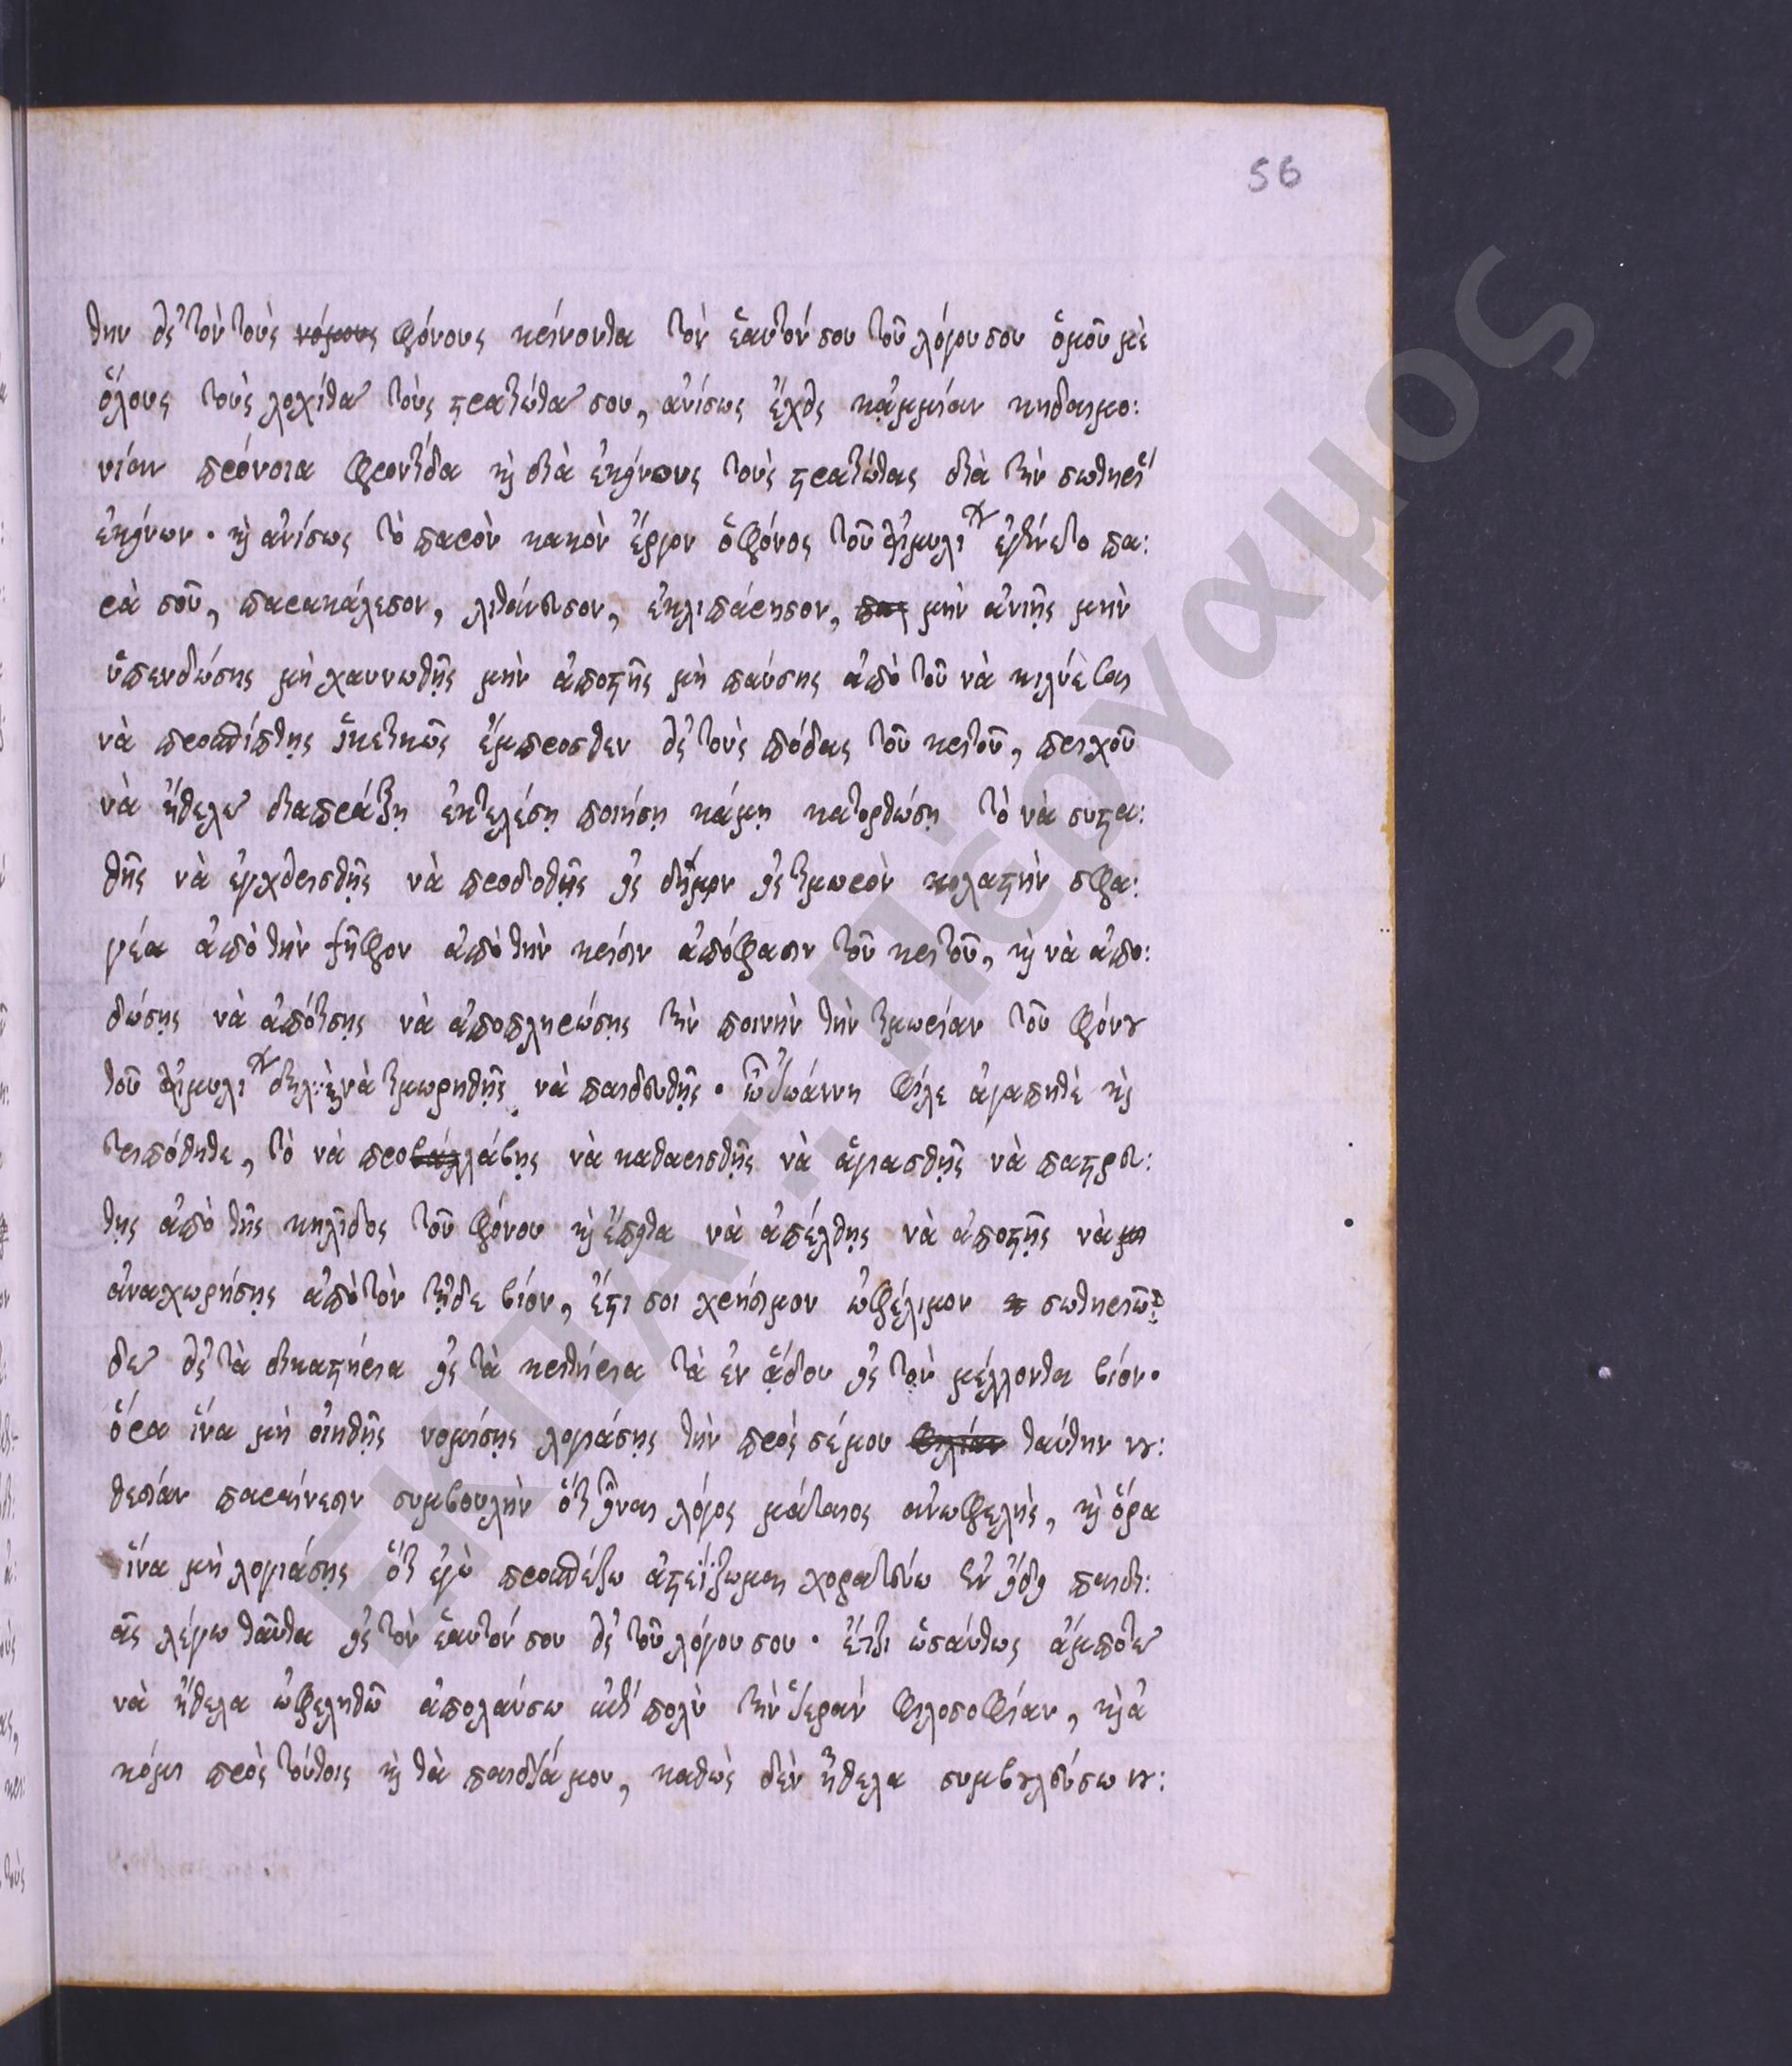 56
την εἰς τὸν τοὺς νόμους φόνους κρίνοντα τὸν ἑαυτόν σου τοῦ λόγου σου ὁμοῦ μὲ
ὅλους τοὺς λοχίτας τοὺς στρατιώτας σου, ἀνίσως ἔχεις κᾀμμίαν κηδαιμο:
νίαν πρόνοια φροντίδα κὴ διὰ ἐκείνους τοὺς στρατιώτας διὰ τὴν σωτηρί
ἐκείνων · κὴ ἀνίσως τὸ παρὸν κακὸν ἔργον ὁ φόνος τοῦ ἐγίνετο πα:
ρὰ σοῦ, παρακάλεσον, λιτάνευσον, ἐκλιπάρησον, μὴν ἀνιῇς μὴν
ὑπενδώσῃς μὴ χαυνωθῇς μὴν ἀποστῇς μὴ παύσῃς ἀπὸ τοῦ νὰ κιλύεσαι
νὰ προσπίπτῃς ἱκετικῶς ἔμπροσθεν εἰς τοὺς πόδας τοῦ κριτοῦ, περιχοῦ
νὰ ἤθελε διαπράξῃ ἐκτελέσῃ ποιήσῃ κάμῃ κατορθώσῃ τὸ νὰ συστα:
θῇς νὰ ἐγχειρισθῇς νὰ προδοθῇς εἰς δήμιον εἰς τιμωρὸν κολαστὴν σφα:
γέα ἀπὸ τὴν ψῆφον ἀπὸ τὴν κρίσιν ἀπόφασιν τοῦ κριτοῦ, κὴ νὰ ἀπο:
δώσῃς νὰ ἀπότισῃς νὰ ἀποπληρώσῃς τὴν ποινὴν τὴν τιμωρίαν τοῦ φόνου
τοῦ νὰ τιμωρηθῇς νὰ παιδευθῇς · ὦ Ἰωάννη φίλε ἀγαπητὲ κὴ
τριπόθητε, τὸ νὰ προλάβῃς νὰ καθαρισθῇς νὰ ἁγιασθῇς νὰ παστρευ:
θῇς ἀπὸ τῆς κηλῖδος τοῦ φόνου κὴ ἔπειτα νὰ ἀπέλθῃς νὰ ἀποστῇς νὰ
ἀναχωρήσῃς ἀπὸ τὸν τῇδε βίον, ἔστι σοι χρήσιμον ὠφέλιμον σωτηριῶ:
δες εἰς τὰ δικαστήρια εἰς τὰ κριτήρια τὰ ἐν ᾅδου εἰς τὸν μέλλοντα βίον ·
ὅρα ἵνα μὴ οἰηθῇς νομίσῃς λογιάσῃς τὴν πρὸς σέ μου φιλίαν ταύτην νου:
θεσίαν παραίνεσιν συμβουλὴν ὅτι εἶναι λόγος μάταιος ἀνωφελὴς, κὴ ὅρα
ἵνα μὴ λογιάσῃς ὅτι ἐγὼ προσπαίζω ἀστεΐζωμαι χορατεύω ἐν εἴδει παιδι:
ᾶς λέγω ταῦτα εἰς τὸν ἑαυτόν σου εἰς τοῦ λόγου σου · ἔτζι ὡσαύτως ἄμποτε
νὰ ἤθελα ὠφεληθῶ ἀπολαύσω πολὺ τὴν ἱερὰν φιλοσοφίαν, κὴ ἀ
κόμι πρὸς τούτοις κὴ τὰ παιδιά μου, καθὼς δὲν ἤθελα συμβουλεύσω νου: